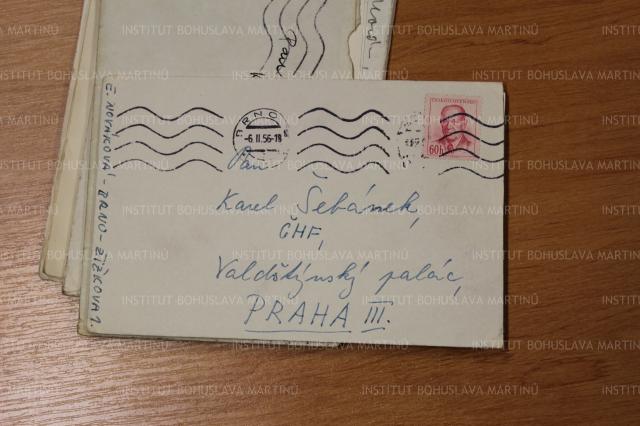 INSTITUT BOHUSLAVA MARTINŮ
BRNO
-6.II.56-18
ČESKOSLOVENSKO
60h
Pan
Karel Šebánek,
ČHF,
Valdštýnský palác,
PRAHA III.
E. NOVÁKOVÁ - BRNO - ŽIŽKOVA 2.